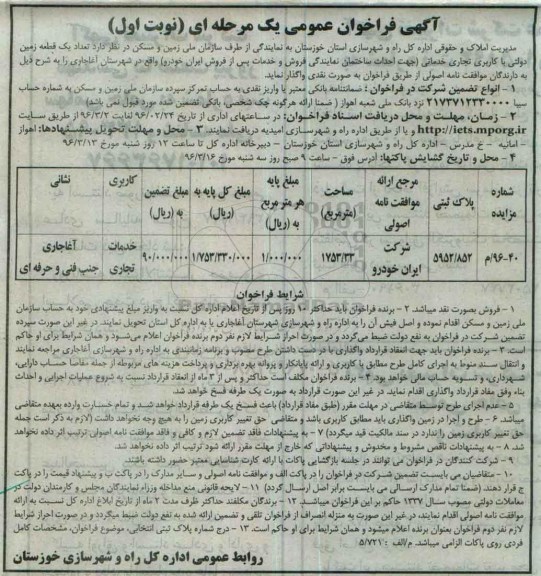 آگهی فراخوان عمومی یک مرحله ای (نوبت اول)
مدیریت املاک و حقوقی اداره کل راه و شهرسازی استان خوزستان به نمایندگی از طرف سازمان ملی زمین و مسکن در نظر دارد تعداد یک قطعه زمین
دولتی با کاربری تجاری خدماتی (جهت احداث ساختمان نمایندگی فروش و خدمات پس از فروش ایران خودرو) واقع در شهرستان آغاجاری را به شرح ذیل
به دارندگان موافقت نامه اصولی از طریق فراخوان به صورت نقدی واگذار نماید.
۱ - انواع تضمین شرکت در فراخوان : ضمانتنامه بانکی معتبر یا واریز نقدی به حساب تمرکز سپرده سازمان ملی زمین و مسکن به شماره حساب
سیبا ۲۱۷۳۷۱۲۳۳۰۰۰۰ نزد بانک ملی شعبه اهواز ( ضمنا ارائه هرگونه چک شخصی بانکی تضمین شده مورد قبول نمی باشد)
۲ - زمان، مهلت و محل دریافت اسناد فراخوان: در ساعتهای اداری از تاریخ ۹۶/۰۲/۲۳ لغایت ۹۶/۳/۲ به سایت
http://iets.mporg.ir و یا از طریق اداره راه و شهرسازی امیدیه دریافت نمایند. ۳ - محل و مهلت تحویل پیشنهادها: اهواز
- امانیه - خ مدرس - اداره کل راه و شهرسازی استان خوزستان - دبیرخانه اداره کل تا ساعت ۱۲ روز شنبه مورخ ۹۶/۳/۱۳
۴ - محل و تاریخ گشایش پاکتها: آدرس فوق - ساعت ۹ صبح روز سه شنبه مورخ ۹۶/۳/۱۶
شماره مزایده | پلاک ثبتی | مرجع ارائه موافقت نامه اصولی | مساحت (مترمربع) | مبلغ پایه هر متر مربع به (ریال) | مبلغ کل پایه به (ریال) | مبلغ تضمین به (ریال) | کاربری | نشانی
۹۶-۴۰/م | ۵۹۵۲/۸۵۲ | شرکت ایران خودرو | ۱۷۵۳/۳۳ | ۱/۰۰۰/۰۰۰ | ۱/۷۵۳/۳۳۰/۰۰۰ | ۹۰/۰۰۰/۰۰۰ | خدمات تجاری | آغاجاری جنب فنی و حرفه ای
شرایط فراخوان
۱ - فروش بصورت نقد میباشد. ۲ - برنده فراخوان باید حداکثر ۱۰ روز پس از تاریخ اعلام اداره کل نسبت به واریز مبلغ پیشنهادی خود به حساب سازمان
ملی زمین و مسکن اقدام نموده و اصل فیش آن را به اداره راه و شهرسازی شهرستان آغاجاری یا به اداره کل استان تحویل نمایند. در غیر این صورت سپرده
تضمین شرکت در فراخوان به نفع دولت ضبط می‌گردد و در صورت احراز شرایط لازم نفر دوم برنده فراخوان اعلام می‌شود و همان شرایط برای او حاکم
است. ۳ - برنده فراخوان باید جهت انعقاد قرارداد واگذاری با در دست داشتن طرح مصوب و برنامه زمانبندی به اداره راه و شهرسازی آغاجاری مراجعه نمایند
و انتقال سند منوط به اجرای کامل طرح مطابق با کاربری و ارائه پایانکار و پروانه بهره برداری و پرداخت هزینه های مربوطه از جمله مفاصا حساب دارایی،
شهرداری، و تسویه حساب مالی خواهد بود. ۴ - برنده فراخوان مکلف است حداکثر و پس از ۳ ماه از انعقاد قرارداد نسبت به شروع عملیات اجرایی و احداث
بناء وفق مفاد قرارداد واگذاری اقدام نمایند. در غیر این صورت قرارداد به صورت یک طرفه فسخ خواهد شد.
۵ - عدم اجرای طرح توسط متقاضی در مهلت مقرر (طبق مفاد قرارداد) باعث فسخ یک طرفه قرارداد خواهد شد و تمام خسارت وارده بعهده متقاضی
میباشد. ۶ - طرح و اجرا در زمین واگذاری باید مطابق کاربری باشد و متقاضی حق تغییر کاربری زمین را به هیچ وجه نخواهد داشت (لازم به ذکر است جمله
حق تغییر کاربری زمین را ندارد در سند مالکیت قید میگردد) ۷ - به پیشنهادات فاقد تضمین لازم و کافی و فاقد موافقت نامه اصولی ترتیب اثر داده نخواهد
شد. ۸ - به پیشنهادات ناقص مشروط و مخدوش و پیشنهاداتی که خارج از مهلت مقرر ارائه شود ترتیب اثر داده نخواهد شد.
۹ - شرکت کنندگان در فراخوان می توانند در جلسه بازگشایی پاکات با ارائه کارت شناسایی معتبر حضور داشته باشند.
۱۰ - متقاضیان می بایست تضمین شرکت در فراخوان را در پاکت الف و موافقت نامه اصولی و سایر مدارک را در پاکت ب و پیشنهاد قیمت را در پاکت
ج قرار دهند. (ضمنا تمام مدارک ارسالی می بایست برابر اصل ارسال گردد) ۱۱ - لایحه قانونی منع مداخله وزراء نمایندگان مجلس و کارمندان دولت در
معاملات دولتی مصوب سال ۱۳۳۷ حاکم بر این فراخوان میباشد. ۱۲ - برندگان مکلفند حداکثر ظرف مدت ۲ ماه از تاریخ ابلاغ اداره کل نسبت به ارائه
موافقت نامه اصولی اقدام نمایند، در غیر این صورت به منزله انصراف از فراخوان تلقی و تضمین ارائه شده به نفع دولت ضبط میگردد و در صورت احراز شرایط
لازم نفر دوم فراخوان بعنوان برنده اعلام میشود و همان شرایط برای او حاکم است. ۱۳ - درج شماره پلاک ثبتی انتخابی، موضوع فراخوان، مشخصات کامل
فردی روی پاکات الزامی میباشد. م/الف : ۵/۷۲۱
روابط عمومی اداره کل راه و شهرسازی خوزستان